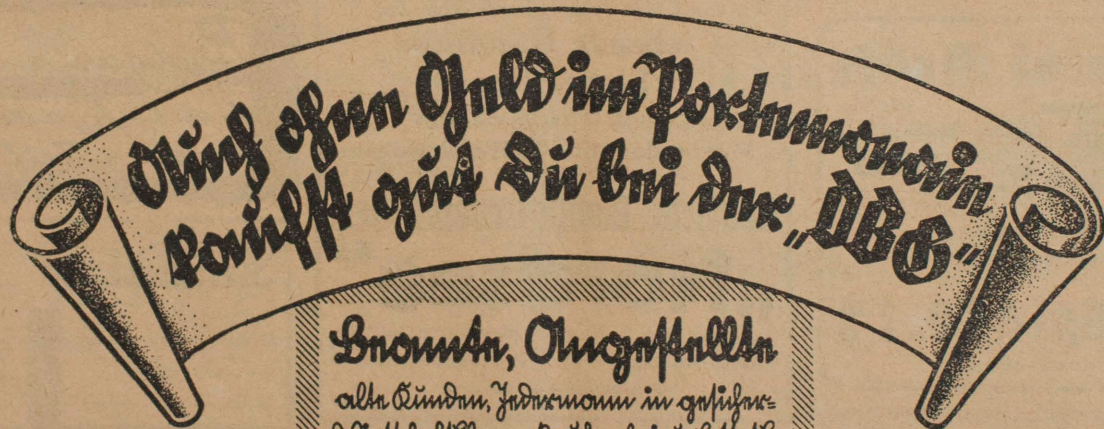 Auch ohne Geld im Portemonaie
kaufst gut Du bei der „DBG“
Beamte, Angestellte
alte Kunden, Jedermann in gesicher=